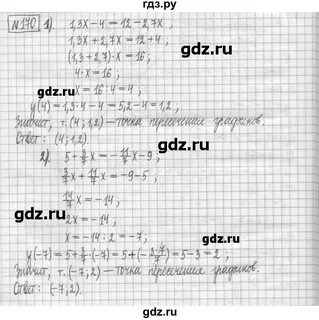 гдз.ру
№170 1). 1,3x-4=12-2,7x ;
1,3x+2,7x=12+4 ;
(1,3+2,7)·x=16 ;
4·x=16 ;
x=16:4=4 ;
y(4)=1,3·4-4=5,2-4=1,2 ;
Значит, т.(4;1,2)-точка пересечения графиков.
Ответ: (4;1,2)
2). 5+3/7x=-11/7x-9 ;
3/7x+11/7x=-9-5 ;
14/7x=-14 ;
2x=-14 ;
x=-14:2=-7 ;
y(-7)=5+3/7·(-7)=5+(-3·7/7)=5-3=2 ;
Значит, т.(-7;2)-точка пересечения графиков.
Ответ: (-7;2).